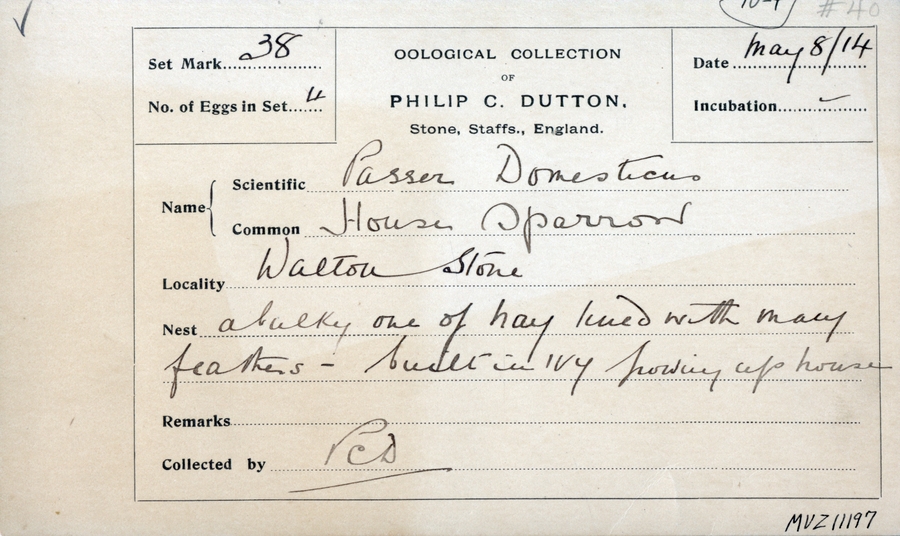 #40
Set Mark 38
No. of Eggs in Set 4
OOLOGICAL COLLECTION
OF
PHILIP C. DUTTON,
Stone, Staffs., England.
Date May 8/14
Incubation
Name
Scientific Passer Domesticus
Common House Sparrow
Locality Walton Stone
Nest a bulky one of hay lined with many
feathers - built in ivy growing up house
Remarks
Collected by PCD
MVZ11197